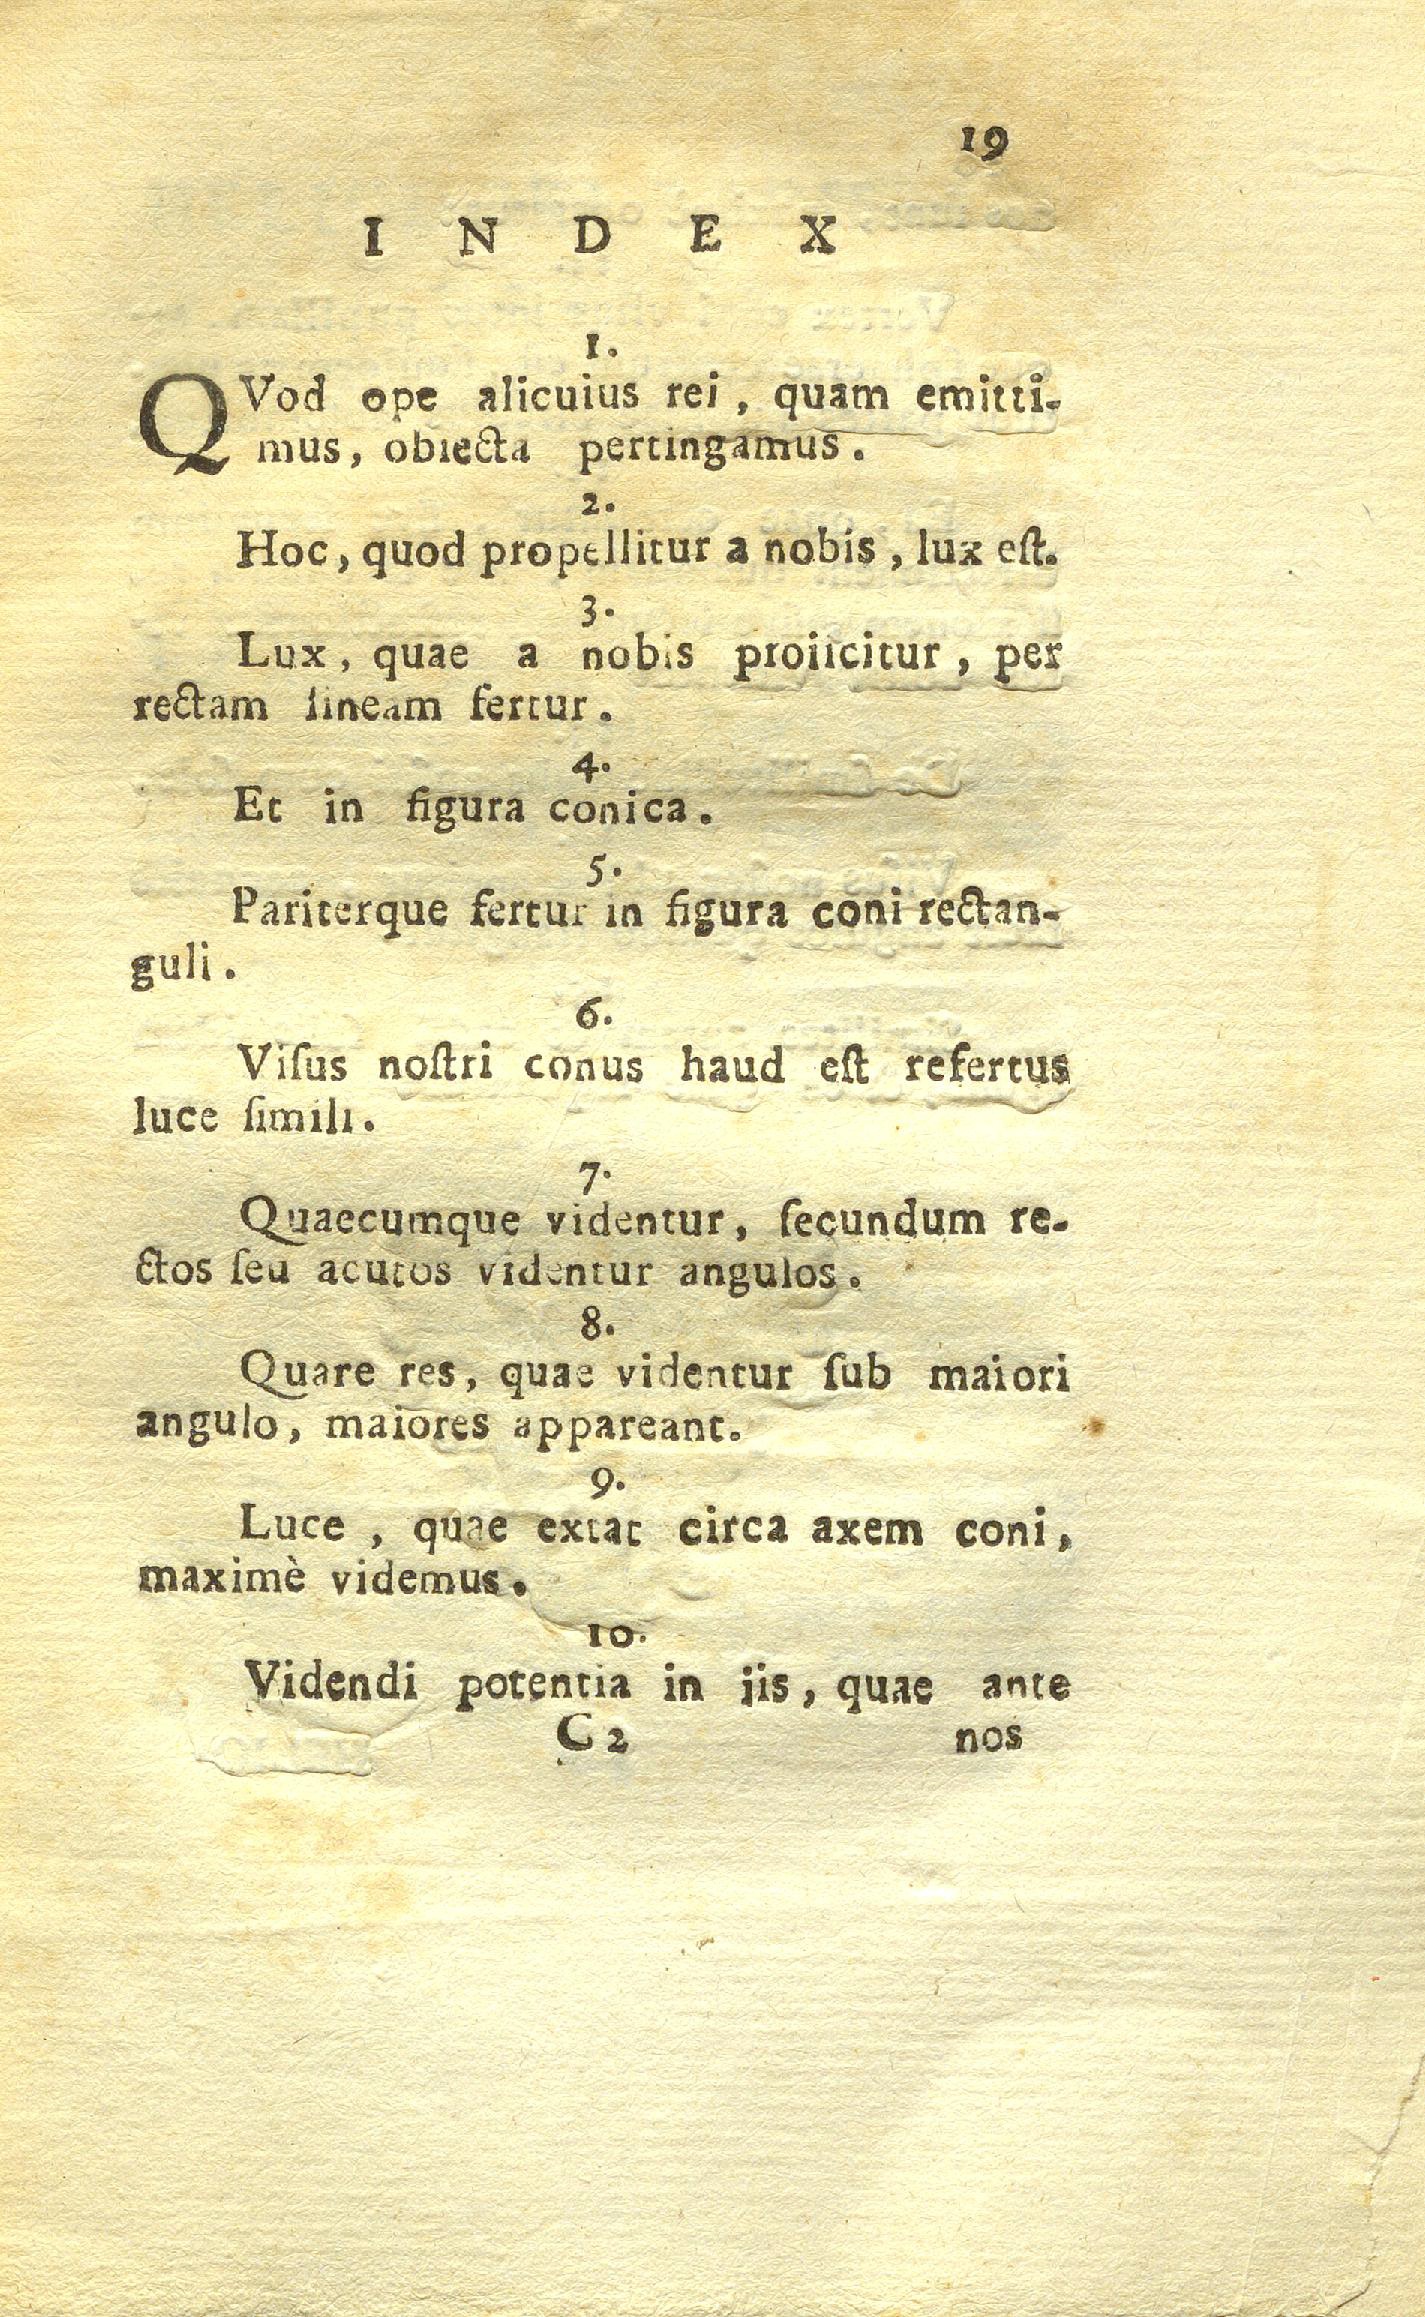 19
INDEX
1.
QVod ope alicuius rei, quam emitti-
mus, obiecta pertingamus.
2.
Hoc, quod propellitur a nobis, lux est.
3.
Lux, quae a nobis proiicitur, per
rectam lineam fertur.
4.
Et in figura conica.
5.
Pariterque fertur in figura coni rectan-
guli.
6.
Viſus noſtri conus haud eſt refertus
luce ſimili.
7.
Quaecumque videntur, ſecundum re-
ctos ſeu acutos videntur angulos.
8.
Quare res, quae videntur ſub maiori
angulo, maiores appareant.
9.
Luce, quae extat circa axem coni,
maximè videmus.
10.
Videndi potentia in iis, quae ante
C 2 nos